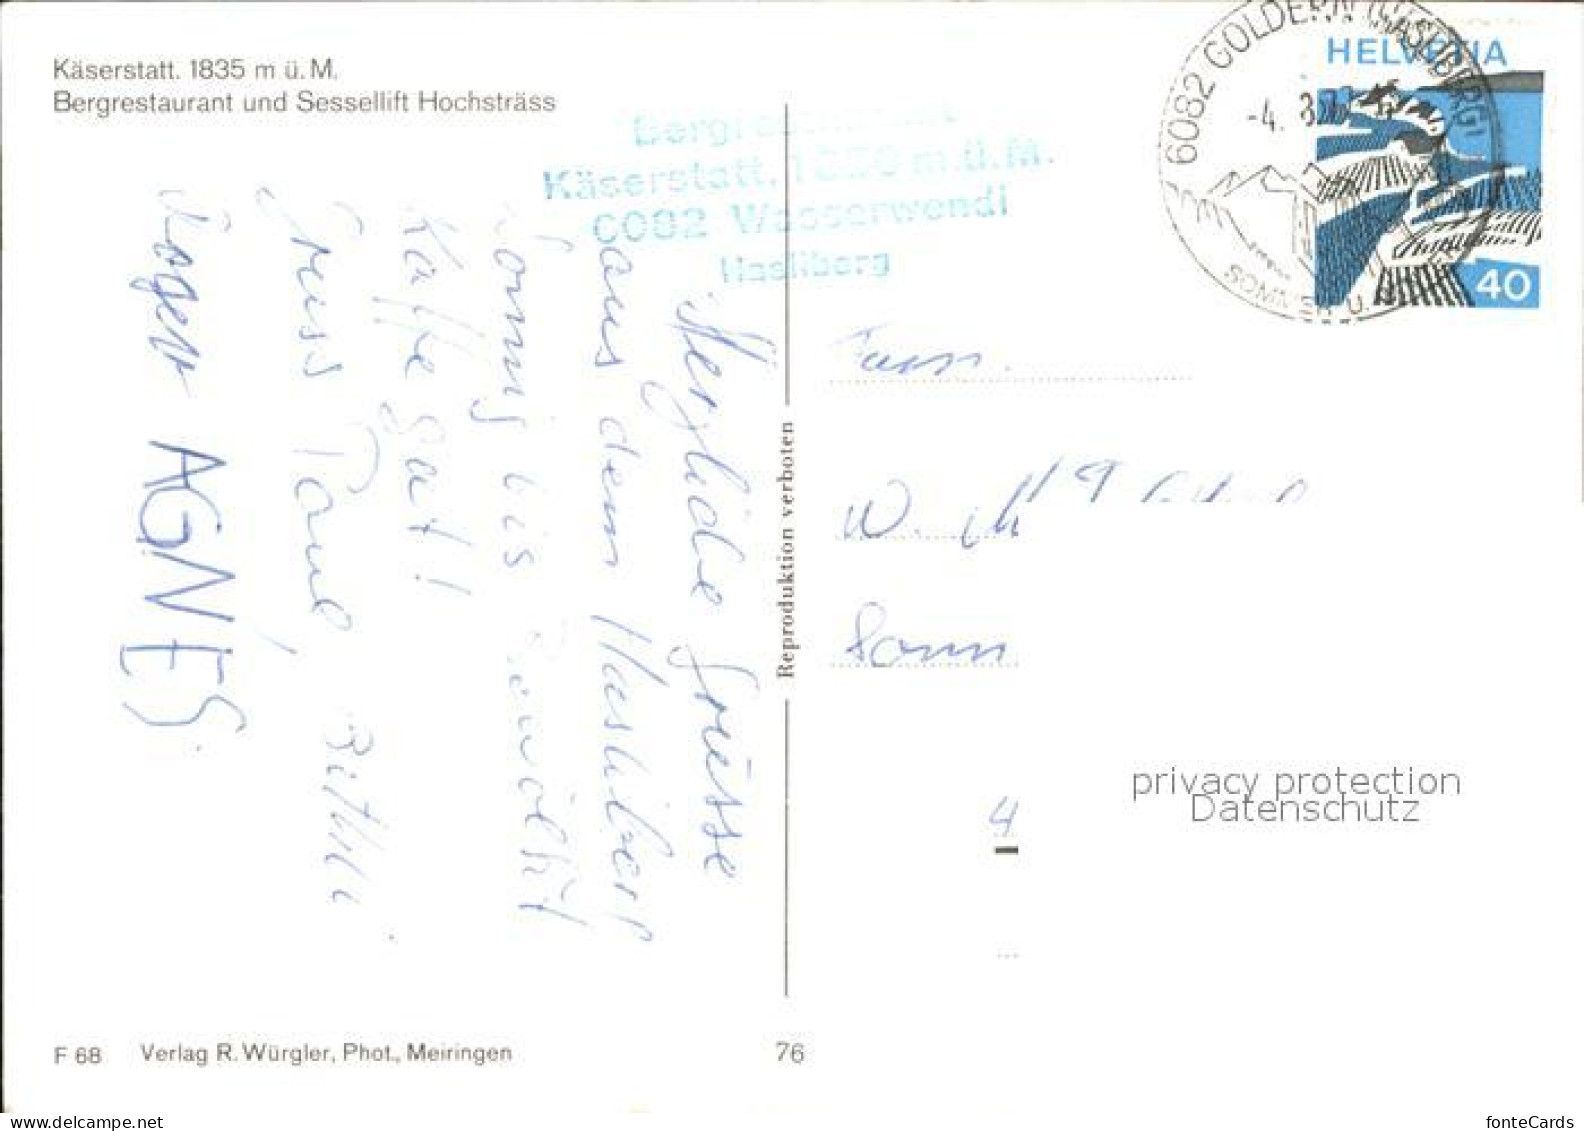 Käserstatt. 1835 m ü. M.
Bergrestaurant und Sessellift Hochsträss
Bergrestaurant
Käserstatt, 1830 m.ü.M.
6082 Wasserwendi
Hasliberg
6082 GOLDERN (HASLIBERG)
-4. 3.
SOMMER U.
HELVETIA
40
Herzliche Grüsse
aus dem Hasliberg
Sonnig bis
Kaffe gat!
Gruss Paul,
Roger AGNES
Reproduktion verboten
Fam.
W.
4
privacy protection
Datenschutz
F 68 Verlag R. Würgler, Phot., Meiringen
76
www.delcampe.net
fonteCards